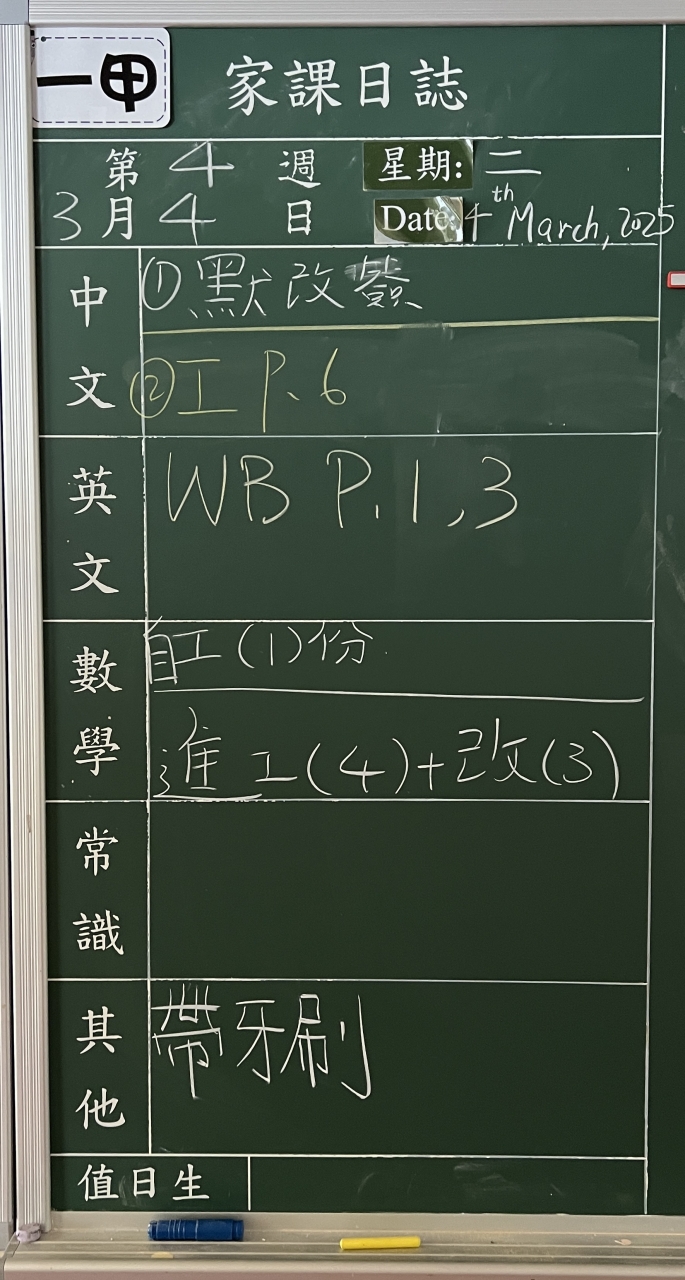 一甲
家課日誌
第 4 週 星期: 二
3月4日 Date: 4th March, 2025
中文
①默改簽
②工 P.6
英文
WB P.1,3
數學
自工(1)份
進工(4)+改(3)
常識
其他
帶牙刷
值日生